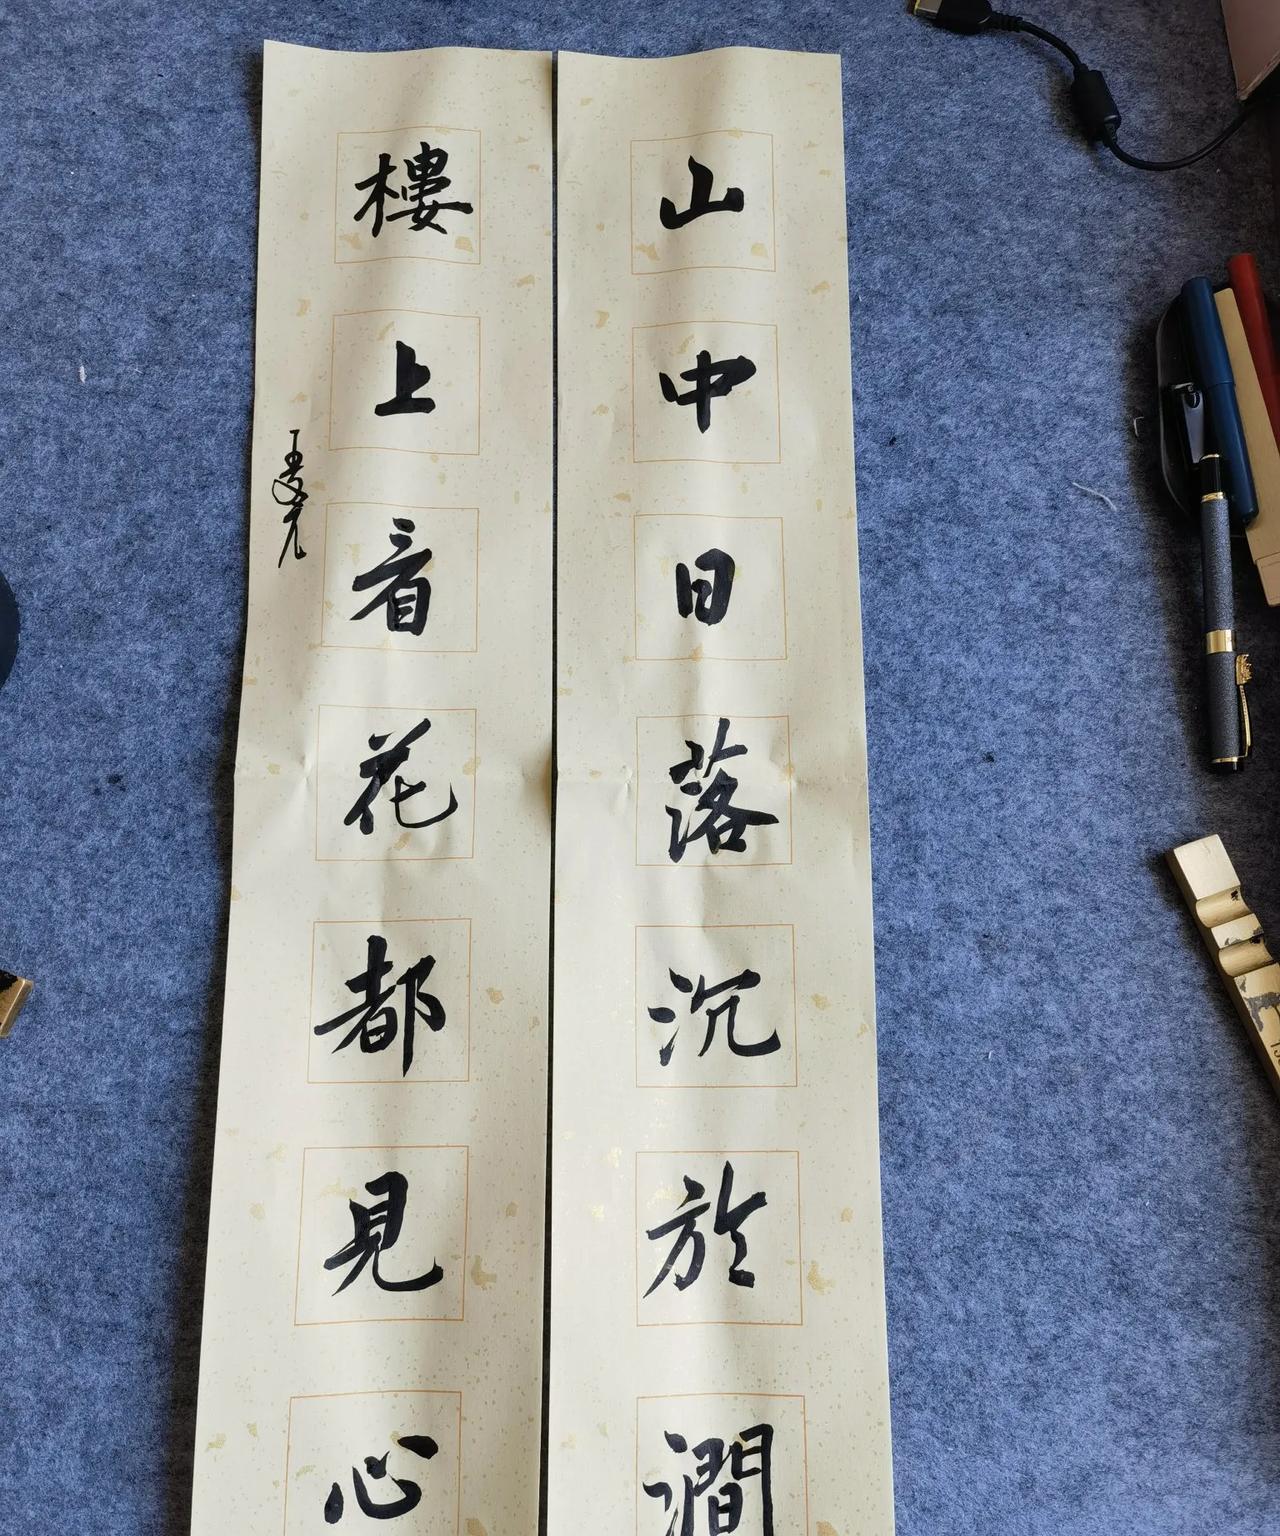 山中日落沉於澗
樓上看花都見心